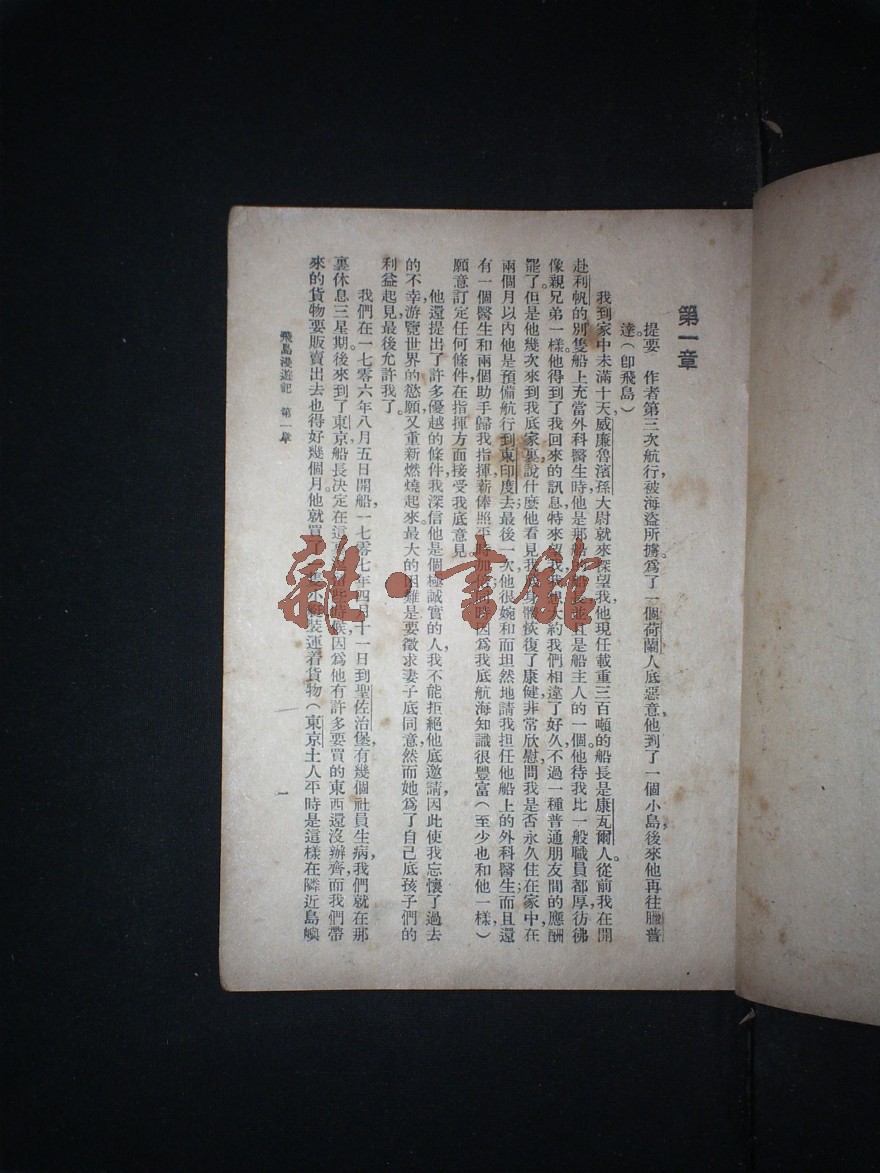 第一章
提要　作者第三次航行，被海盜所擄。爲了一個荷蘭人底惡意，他到了一個小島，後來他再往臘普
達（卽飛島）
我到家中未滿十天，威廉魯濱孫大尉就來探望我，他現任載重三百噸的船長，是康瓦爾人。從前我在開
赴利帆的別隻船上充當外科醫生時，他是那船的船長，並且是船主人的一個。他待我比一般職員都厚，彷彿
像親兄弟一樣。他得到了我回來的訊息，特來望我，我想大約我們相違了好久，不過一種普通朋友間的應酬
罷了。但是他幾次來到我底家裏，說什麼他看見我底身體恢復了康健，非常欣慰；問我是否永久住在家中；在
兩個月以內，他是預備航行到東印度去；最後一次，他很婉和而坦然地請我担任他船上的外科醫生；而且還
有一個醫生和兩個助手歸我指揮；薪俸照平時加倍；同時因爲我底航海知識很豐富（至少也和他一樣），
願意訂定任何條件，在指揮方面，接受我底意見。
他還提出了許多優越的條件，我深信他是個極誠實的人，我不能拒絕他底邀請，因此使我忘懷了過去
的不幸，游覽世界的慾願，又重新燃燒起來。最大的困難是要徵求妻子底同意，然而她爲了自己底孩子們的
利益起見，最後允許我了。
我們在一七零六年八月五日開船，一七零七年四月十一日到聖佐治堡，有幾個社員生病，我們就在那
裏休息三星期。後來到了東京，船長決定在這 候，因爲他有許多要買的東西還沒辦齊，而我們帶
來的貨物要販賣出去也得好幾個月。他就買了 小艇，裝運着貨物（東京土人平時是這樣在隣近島嶼
飛島漫遊記　第一章
一
雜·書館